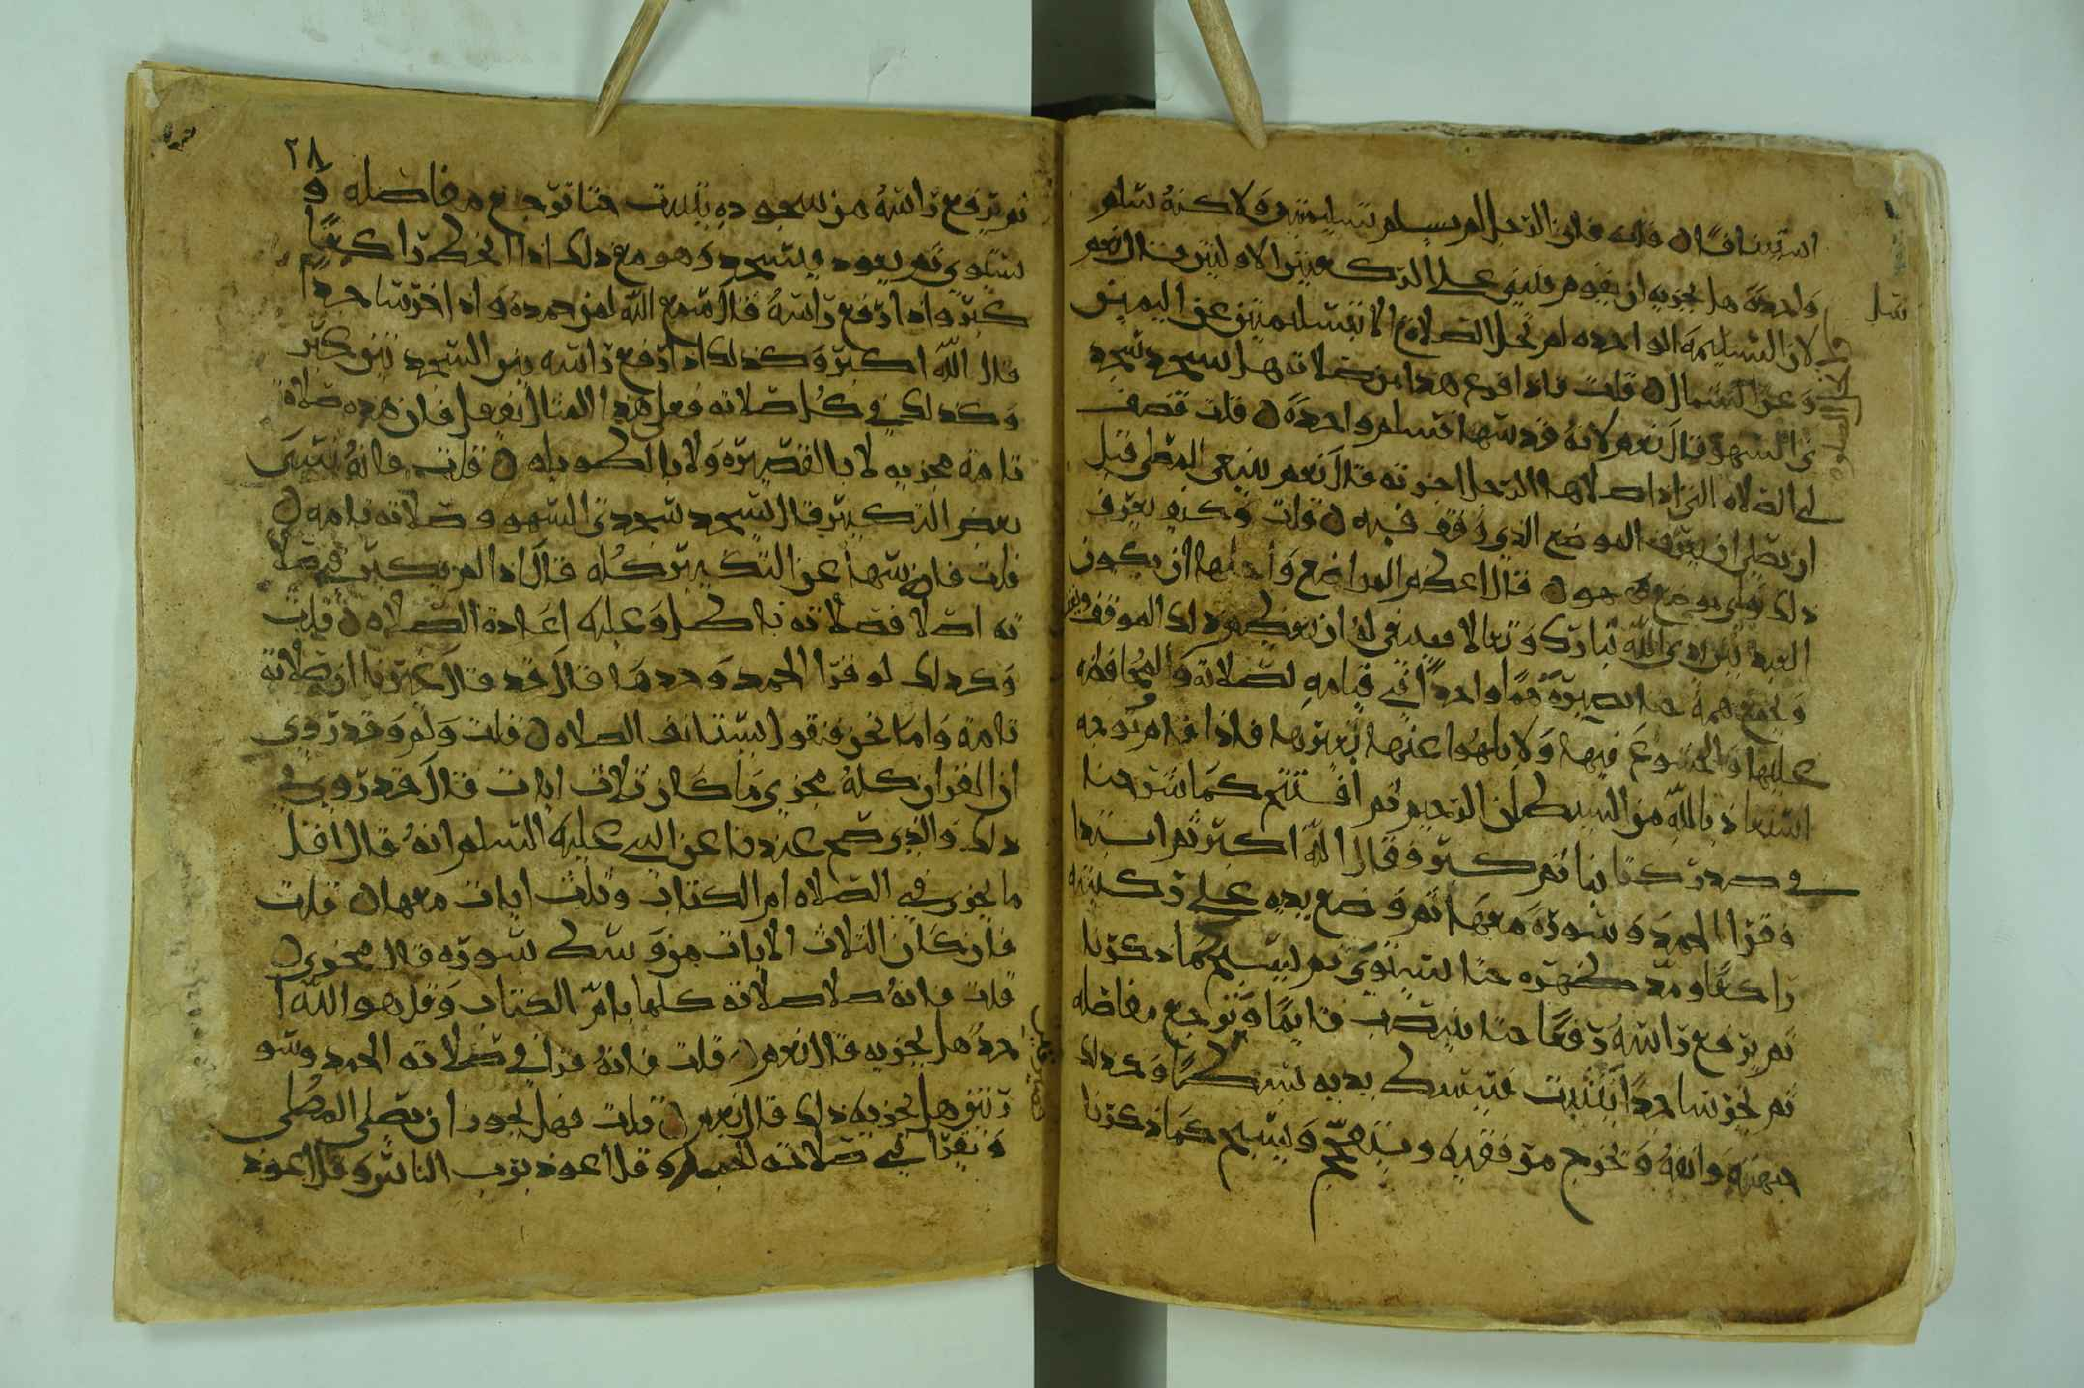 استينافًا ن قلت فان الرجل لم يسلم تسليمتين ولاكنه سلم
واحدة هل يجزيه ان يقوم فيبني على الركعتين الاولتين قال نعم
لان التسليمة الواحده لم تحل الصلاة الا بتسليمتين عن اليمين
وعن الشمال ن قلت فاذا افرغ هذا من صلاته هل يسجد سجد
تي السهو قال نعم لانه قد سها فسلم واحدة ن قلت فصف
لي الصلاه التي اذا صلاها الرجل اجزته قال نعم ينبغي للمصلي قبل
ان يصلي ان يعرف الموضع الذي وقف فيه ن قلت وكيف يعرف
ذلك واي موضع هو ن قال اعظم المواضع واجلها ان يكون
العبد بين يدي الله تبارك وتعالا فينبغي له ان يعظم ذلك الموقف
و يجمع همه حتا يصيره همًا واحدًا في قيامه لصلاته والمحافظه
عليها والخشوع فيها ولا يلهوا عنها بغيرها فاذا قام توجه
استعاذ بالله من الشيطان الرجيم ثم افتتح كما شرحنا
في صدر كتابنا ثم كبر فقال الله اكبر ثم ابتدا
وقرا الحمد وسورة معها ثم وضع يديه على ركبتيه
راكعًا ومد ظهره حتا يستوي ثم ليسبح كما ذكرنا
ثم يرفع راسه رفعًا حتا ينتصب قايمًا وترجع مفاصله
ثم يخر ساجدًا بتثبت فيبسط يديه بسطًا وكذلك
جبهته وانفه ويخرج مرفقيه ويتفحج ويسبح كما ذكرنا
٢٨
ثم يرفع راسه من سجوده بتثبت حتا ترجع مفاصله و
يستوي ثم يعود فيسجد وهو مع ذلك اذا انحط راكعًا
كبر واذا رفع راسه قال سمع الله لمن حمده واذا خر ساجدًا
قال الله اكبر وكذلك اذا رفع راسه بين السجدتين كبر
وكذلك في كل صلاته فعلى هذا المثال يفعل فان هذه صلاة
تامة مجزيه لا بالقصيره ولا بالطويله ن قلت فانه نسي
بعض التكبير قال يسجد سجدتي السهو وصلاته تامه ن
قلت فان سها عن التكبير كله قال اذا لم يكبر في صلا
ته اصلا فصلاته باطل وعليه اعادة الصلاه ن قلت
وكذلك لو قرا الحمد وحدها قال قد قال غيرنا ان صلاته
تامة واما نحن فنقول يستانف الصلاه ن قلت ولم وقد روي
ان القران كله يجزي ما كان ثلاث ايات قال قد روي
ذلك والذي صح عندنا عن النبي عليه السلم انه قال اقل
ما يجزي في الصلاه ام الكتاب وثلث ايات معها ن قلت
فان كان الثلاث الايات من وسط سوره قال يجزي ن
قلت فانه صلا صلاته كلها بام الكتاب وقل هو الله ا
حد هل يجزيه قال نعم ن قلت فانه قرا في صلاته الحمد وسو
رتين هل يجزيه ذلك قال نعم ن قلت فهل يجوز ان يصلي المصلي
ويقرا في صلاته وقل اعوذ برب الناس وقل اعوذ